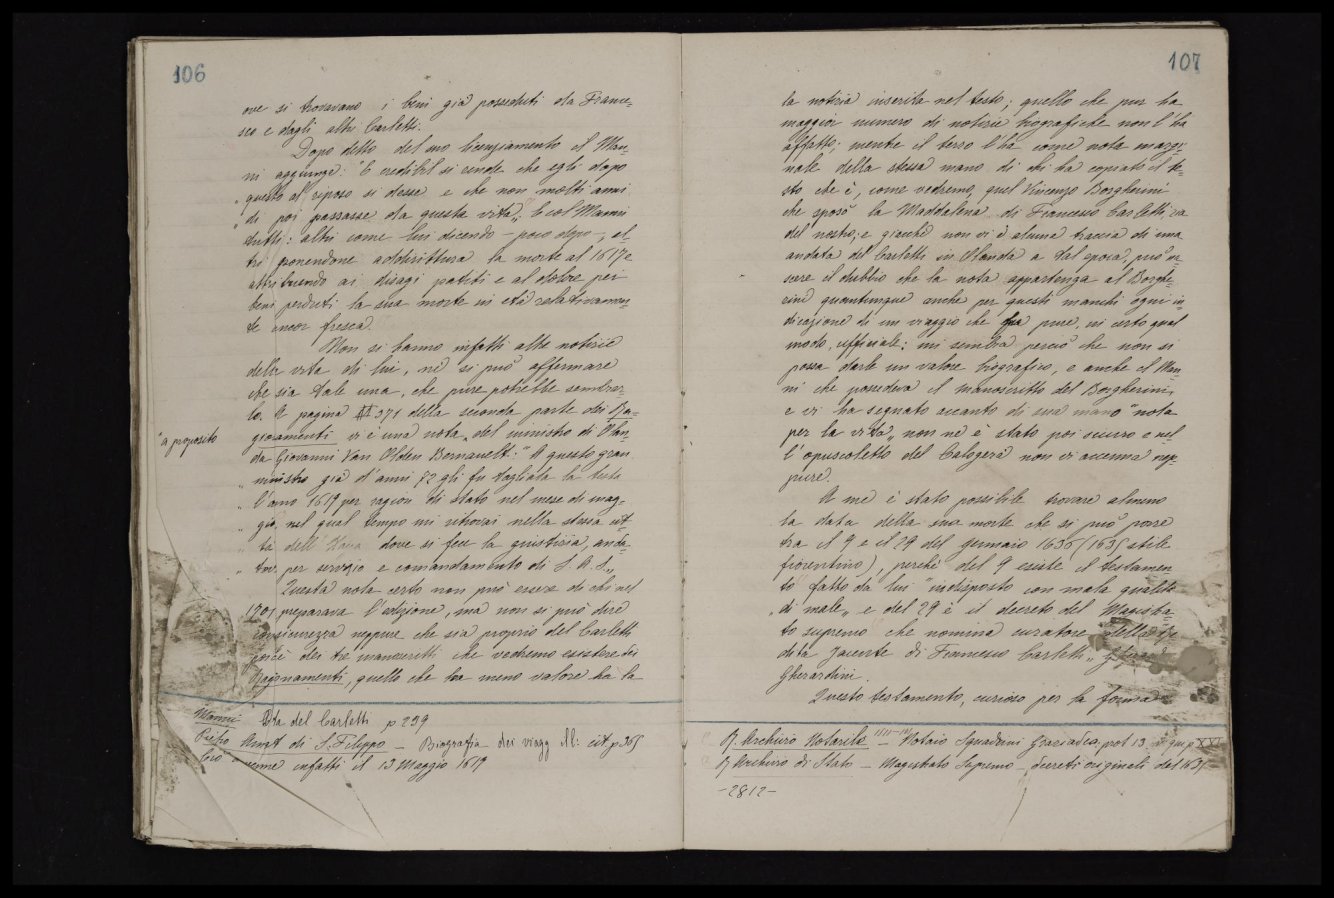 106
ove si trovavano i beni già posseduti da France-
sco e dagli altri Carletti.
Dopo detto del suo licenziamento il Man-
ni aggiunge: "E credibil si rende che egli dopo
"questo al riposo si desse e che non molti anni
"di poi passasse da questa vita„ E col Manni
tutti: altri come lui dicendo - poco dopo -, al-
tri ponendone addirittura la morte al 1617 e
attribuendo ai disagi patiti e al dolore pei
beni perduti la sua morte in età relativamen-
te ancor fresca.
Non si hanno infatti altre notizie
della vita di lui, nè si può affermare
che sia tale una, che pure potrebbe sembrar-
lo. A pagina 371 della seconda parte dei Ra-
gionamenti vi è una nota „ del ministro di Olan-
"a proposito
da Giovanni Van Olden Bernavelt: "A questo gran
„ ministro già d'anni 72 gli fu tagliata la testa
„ l'anno 1619 per ragion di stato nel mese di mag-
„ gio, nel qual tempo mi ritrovai nella stessa cit-
„ tà dell'Haya dove si fece la giustizia, anda-
„ tovi per servizio e comandamento di S. A. S.„
Questa nota certo non può essere di chi nel
1701 preparava l'edizione, ma non si può dire
con sicurezza neppure che sia proprio del Carletti
poichè dei tre manoscritti che vedremo esistere dei
Ragionamenti, quello che ha meno valore ha la
Manni Vita del Carletti p 299
Pietro Amat di S. Filippo - Biografia dei viagg. It: cit. p 365
Ciò avvenne infatti il 13 Maggio 1619
107
la notizia inserita nel testo; quello che pur ha
maggior numero di notizie biografiche non l'ha
affatto; mentre il terzo l'ha come nota margi-
nale della stessa mano di chi ha copiato il te-
sto che è, come vedremo, quel Vincenzo Borgherini
che sposò la Maddalena di Francesco Carletti zia
del nostro; e giacchè non vi è alcuna traccia di una
andata del Carletti in Olanda a tal epoca, può na-
scere il dubbio che la nota appartenga al Borghe-
rini quantunque anche per questi manchi ogni in-
dicazione di un viaggio che fu pure, in certo qual
modo, ufficiale: mi sembra perciò che non si
possa darle un valore biografico, e anche il Man-
ni che possedeva il manoscritto del Borgherini,
e vi ha segnato accanto di sua mano "nota
per la vita„ non ne è stato poi sicuro e nel-
l'opuscoletto del Calogerà non vi accenna nep-
pure.
A me è stato possibile trovare almeno
la data della sua morte che si può porre
tra il 9 e il 29 del gennaio 1636 (1635 stile
fiorentino), perchè del 9 esiste il testamen
to fatto da lui "indisposto con mala qualità
„ di male„ e del 29 è il decreto del Magistra
to supremo che nomina curatore della "ere
dità jacente di Francesco Carletti„
Gherardini.
Questo testamento, curioso per la forma
R. Archivio Notarile - Notaio Squadrini Graziadio; prot 13
R. Archivio di Stato - Magistrato Supremo - Decreti originali del 1635
- 2812 -